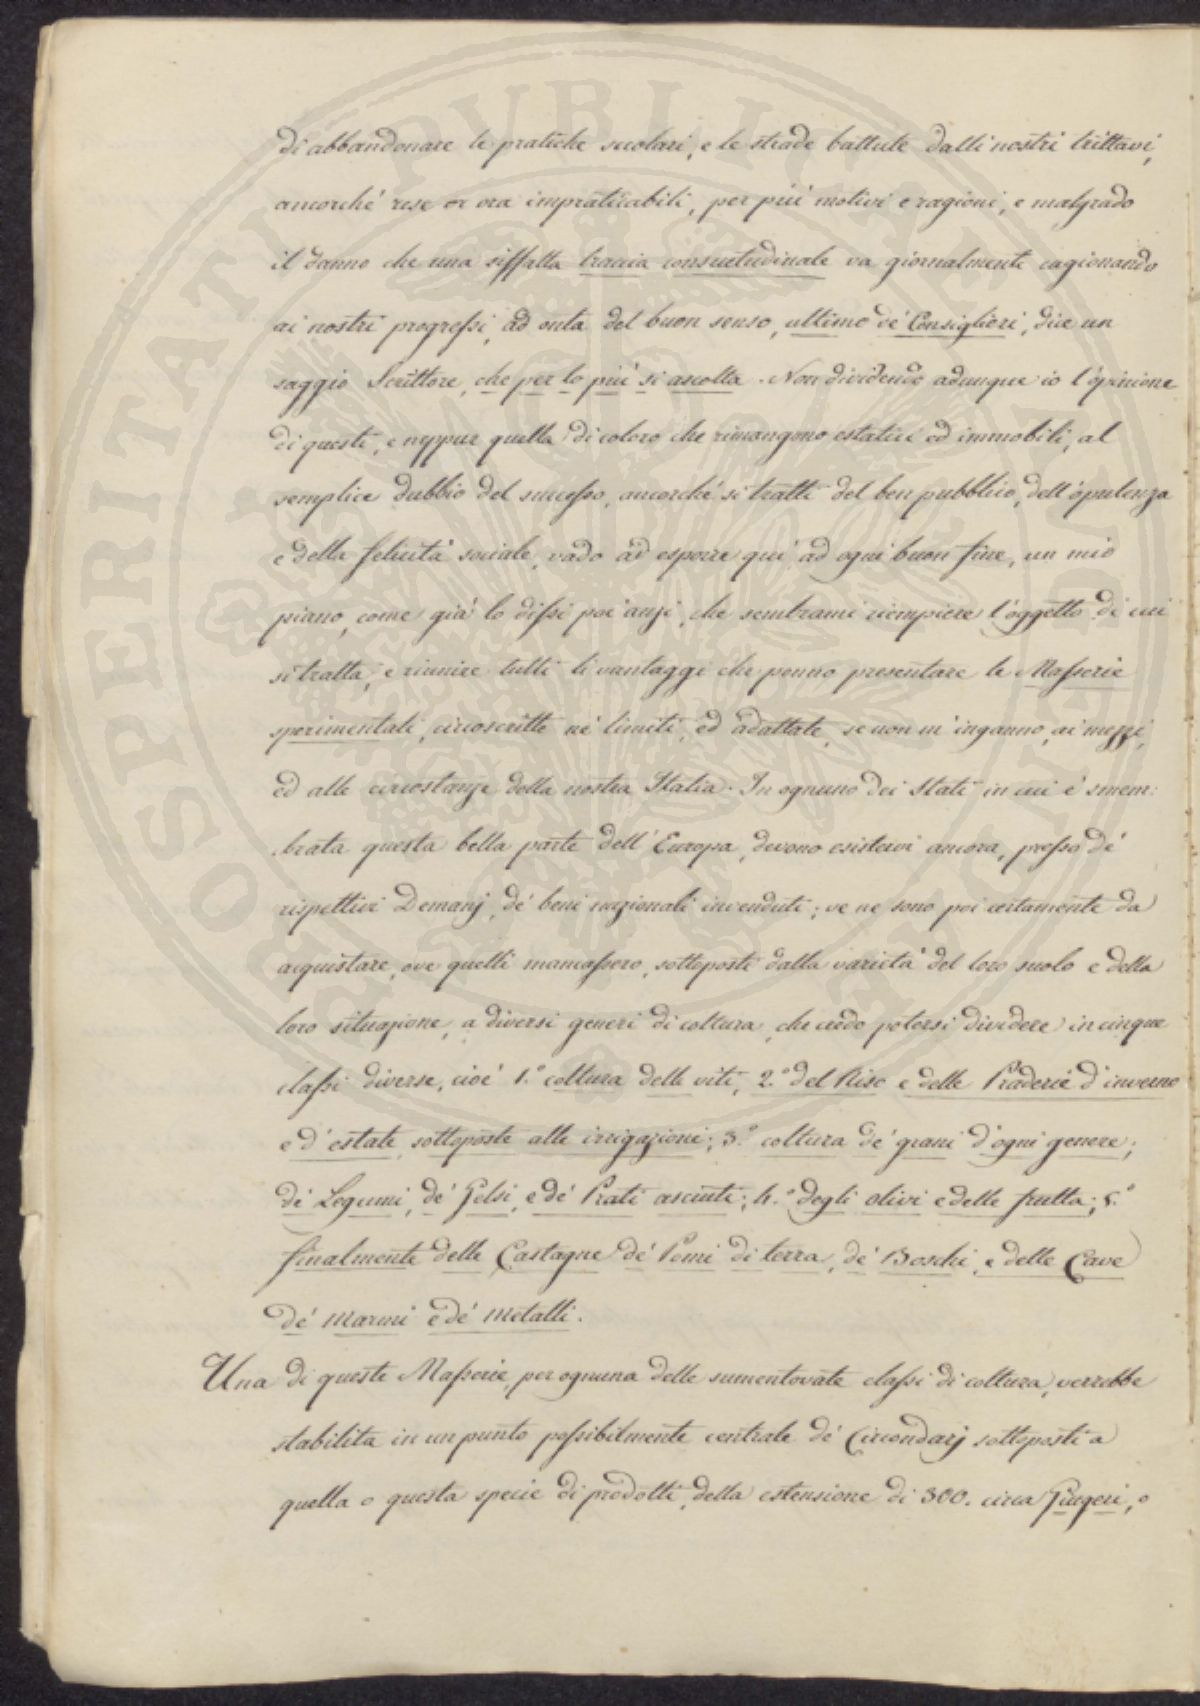 di abbandonare le pratiche secolari, e le strade battute dalli nostri trittavi,
ancorché rese or ora impraticabili, per più motivi e ragioni, e malgrado
il danno che una siffatta traccia consuetudinale va giornalmente cagionando
ai nostri progressi, ad onta del buon senso, ultimo de' Consiglieri, dice un
saggio Scrittore, che per lo più si ascolta. Non dividendo adunque io l'opinione
di questi, e neppur quella di coloro che rimangono estatici ed immobili, al
semplice dubbio del successo, ancorché si tratti del ben pubblico, dell'opulenza
e della felicità sociale, vado ad esporre qui ad ogni buon fine, un mio
piano, come già lo dissi poc'anzi, che sembrami riempiere l'oggetto di cui
si tratta, e riunire tutti li vantaggi che ponno presentare le Masserie
sperimentali, circoscritte ne' limiti, ed adattate, se non m'inganno, ai mezzi,
ed alle circostanze della nostra Italia. In ognuno dei Stati in cui è smem:
:brata questa bella parte dell'Europa, devono esistervi ancora, presso de'
rispettivi Demanj, de' beni nazionali invenduti; ve ne sono poi certamente da
acquistare, ove quelli mancassero, sottoposti dalla varietà del loro suolo e della
loro situazione, a diversi generi di coltura, che credo potersi dividere in cinque
classi diverse, cioè 1.° coltura delle viti, 2.° del Riso e delle Praderie d'inverno
e d'estate, sottoposte alle irrigazioni; 3.° coltura de' grani d'ogni genere;
de' Legumi, de' Gelsi, e de' Prati asciuti; 4.° degli olivi e delle frutta; 5.°
finalmente delle Castagne de' Pomi di terra, de' Boschi, e delle Cave
de' Marmi e de' Metalli.
Una di queste Masserie, per ognuna delle sumentovate classi di coltura, verrebbe
stabilita in un punto possibilmente centrale de' Circondarj sottoposti a
quella o questa specie di prodotti, della estensione di 300. circa Jugeri, o
PROSPERITATI PUBLICAE